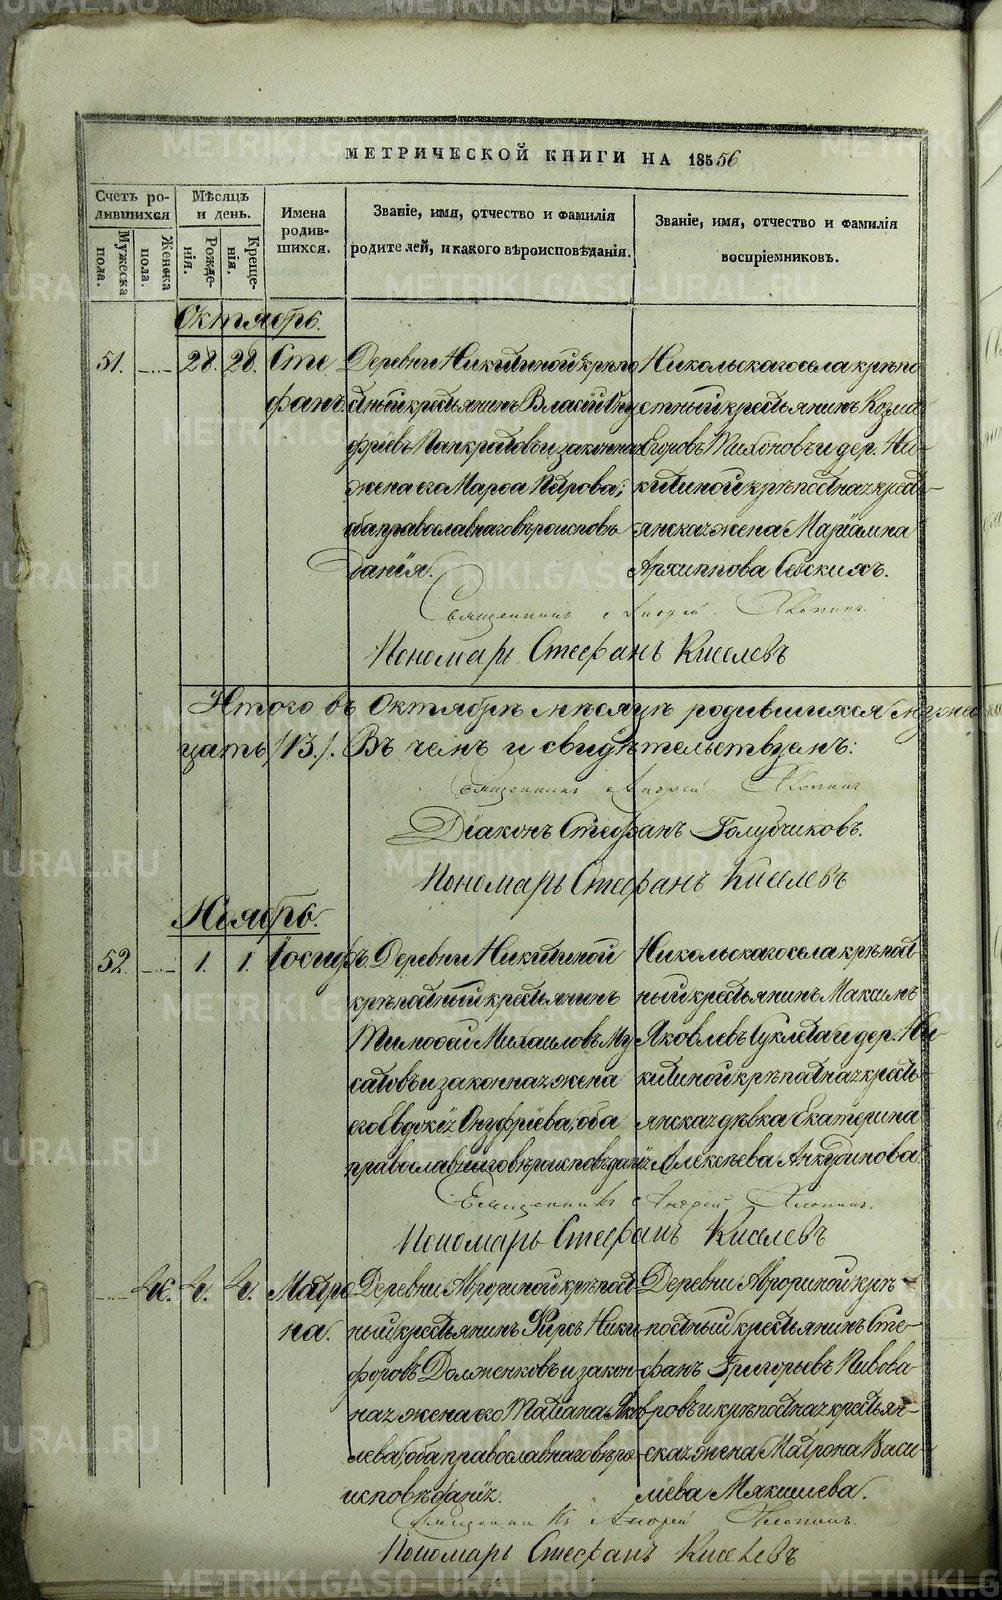 МЕТРИЧЕСКОЙ КНИГИ НА 18556
Счетъ ро-
дившихся
Мужеска
пола.
Женска
пола.
Мѣсяцъ
и день.
Рожде-
нія.
Креще-
нія.
Имена
родив-
шихся.
Званіе, имя, отчество и фамилія
родителей, и какого вѣроисповѣданія.
Званіе, имя, отчество и фамилія
воспріемниковъ.
Октябрь.
51.
28.
28.
Сте
фанъ
Деревни Никитиной крѣпо
стный крестьянинъ Власій Ону
фріевъ Панкратовъ и законная
жена его Марѳа Петрова;
оба православнаго вѣроисповѣ
данія.
Никольскаго села крѣпо
стный крестьянинъ Козма
Егоровъ Тихоновъ и дер. Ни-
китиной крѣпостная кресть-
янская жена Маріамна
Архиппова
Священникъ Андрей Хлопинъ.
Пономарь Стефанъ Киселевъ
Итого въ Октябрѣ мѣсяцѣ родившихся
цать /13/. Въ чемъ и свидѣтельствуемъ:
Священникъ Андрей Хлопинъ
Діаконъ Стефанъ Голубчиковъ.
Пономарь Стефанъ Киселевъ
Ноябрь.
52.
1.
1.
Іосифъ.
Деревни Никитиной
крѣпостный крестьянинъ
Тимоѳей Михаиловъ Му
сатовъ и законная жена
его Евдокія Онуфріева, оба
православнаго вѣроисповѣданія
Никольскаго села крѣпост
ный крестьянинъ Максимъ
Яковлевъ и дер. Ни
китиной крѣпостная кресть-
янская дѣвка Екатерина
Алексѣева Анкудинова
Священникъ Андрей Хлопинъ.
Пономарь Стефанъ Киселевъ
Матро
на.
Деревни Аврориной крѣпост
ный крестьянинъ Фирсъ Ники
форовъ Долженковъ и закон
ная жена его Татіана Яков
лева, оба православнаго вѣро
исповѣданія.
Деревни Аврориной крѣ
постный крестьянинъ Сте-
фанъ Григорьевъ Пивова
ровъ и крѣпостная крестьян-
ская жена Матрона Васи
ліева Мякишева.
Священникъ Андрей Хлопинъ.
Пономарь Стефанъ Киселевъ
METRIKI.GASO-URAL.RU